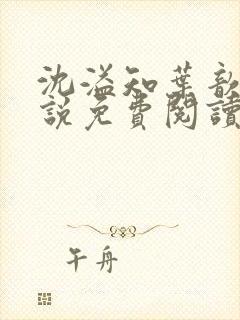 沈溢知葉歆
說免費閱讀
午舟